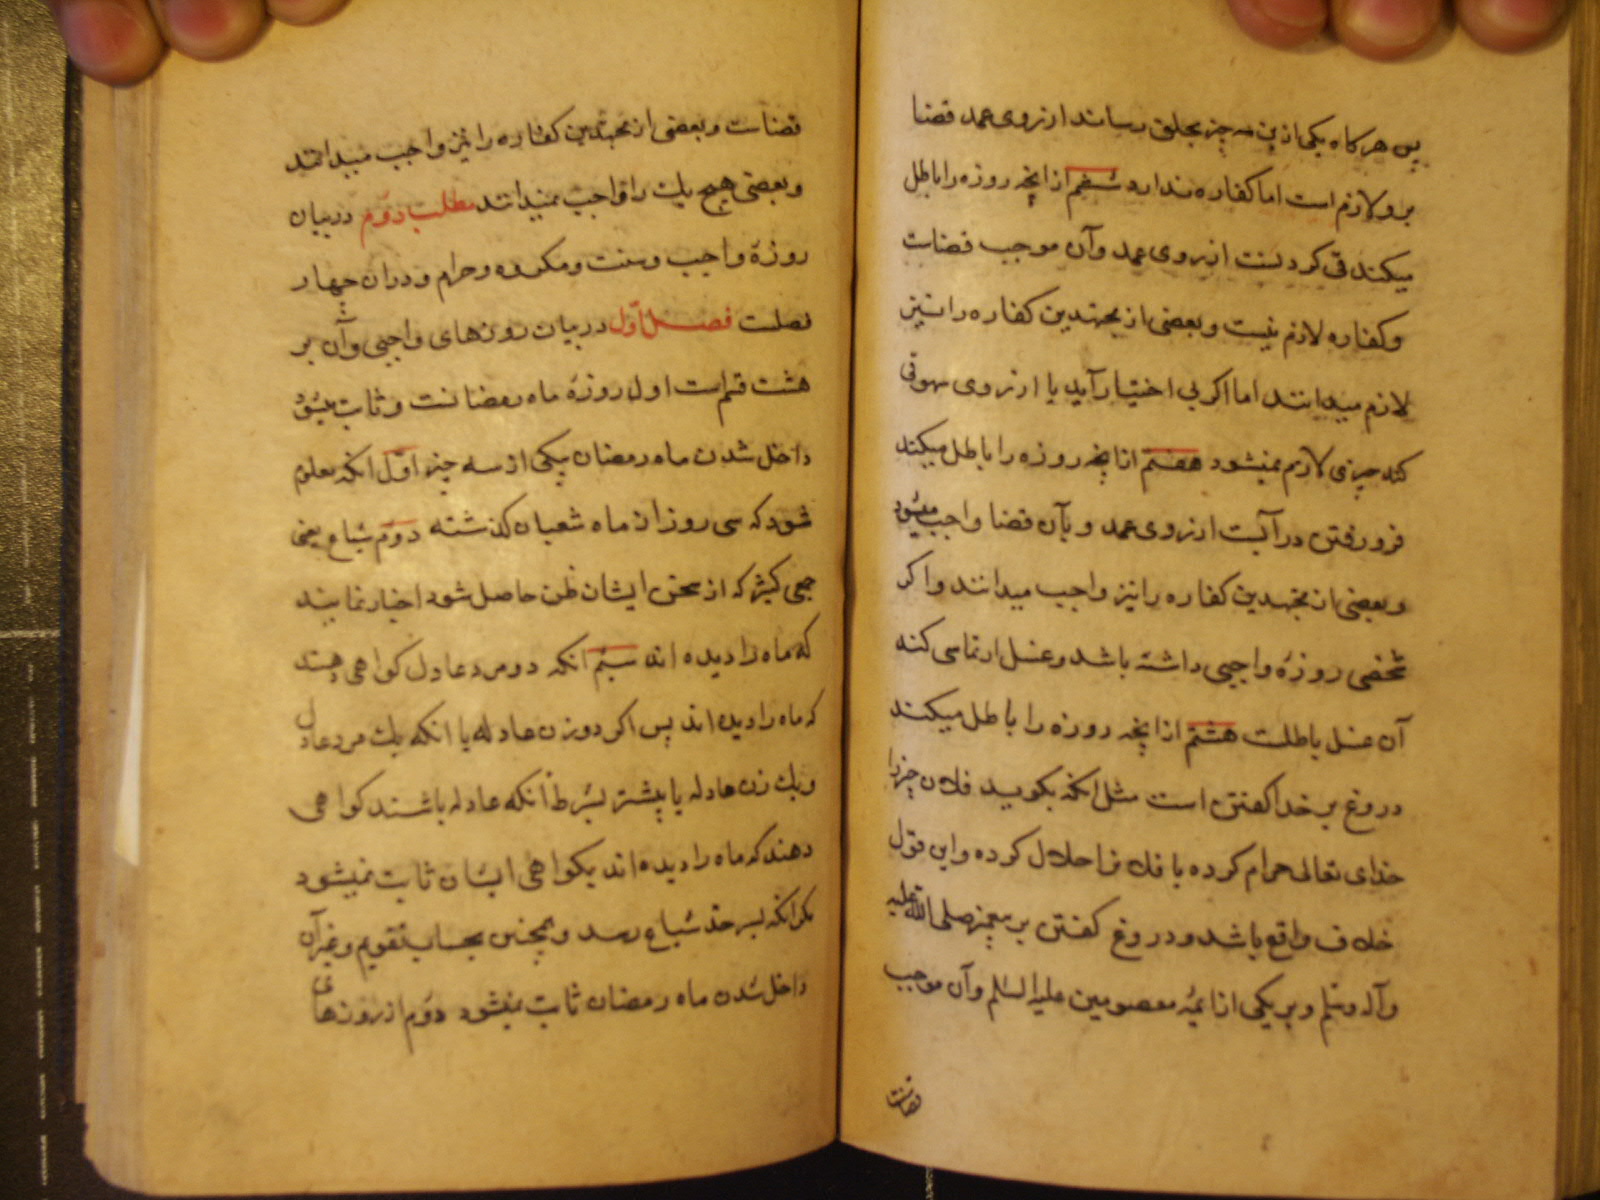 پس هر کاه یکی ازین سه چیز بحلق رساند از روی عمد قضا
برو لازم است اما کفاره ندارد ششم از انچه روزه را باطل
میکند قی کردنست از روی عمد وآن موجب قضاست
وکفاره لازم نیست وبعضی از مجتهدین کفاره را نیز
لازم میدانند اما اکر بی اختیار آید یا از روی سهو قی
کند چیزی لازم نمیشود هفتم از انچه روزه را باطل میکند
فرو رفتن در آبست از روی عمد وبآن قضا واجب میشود
وبعضی از مجتهدین کفاره را نیز واجب میدانند واکر
شخصی روزهٔ واجبی داشته باشد وغسل ارتماسی کند
آن غسل باطلست هشتم از انچه روزه را باطل میکند
دروغ بر خدا کفتن است مثل انکه بکوید فلان چیز را
خدای تعالی حرام کرده یا فلانرا حلال کرده واین قول
خلاف واقع باشد ودروغ کفتن بر پیغمبر صلی الله علیه
وآله وسلم وبر یکی از ائمهٔ معصومین علیهم السلام وآن موجب
قضاست
قضاست وبعضی از مجتهدین کفاره را نیز واجب میدانند
وبعضی هیچ یك را واجب نمیدانند مطلب دوّم در بیان
روزهٔ واجب وسنت ومکروه وحرام ودران چهار
فصلست فصل اوّل در بیان روزهای واجبی وآن بر
هشت قسم است اول روزهٔ ماه رمضانست وثابت میشود
داخل شدن ماه رمضان بیکی از سه چیز اوّل انکه معلوم
شود که سی روز از ماه شعبان کذشته دوّم شیاع یعنی
جمعی کثیر که از سخن ایشان ظن حاصل شود اخبار نمایند
که ماه را دیده اند سیّم انکه دو مرد عادل کواهی دهند
که ماه را دیده اند پس اکر دو زن عادله یا انکه یك مرد عادل
ویك زن عادله یا بیشتر بشرط آنکه عادله باشند کواهی
دهند که ماه را دیده اند بکواهی ایشان ثابت نمیشود
مکر انکه بسر حد شیاع رسد وهمچنین بحساب تقویم وغیر آن
داخل شدن ماه رمضان ثابت نمیشود دوّم از روزهای